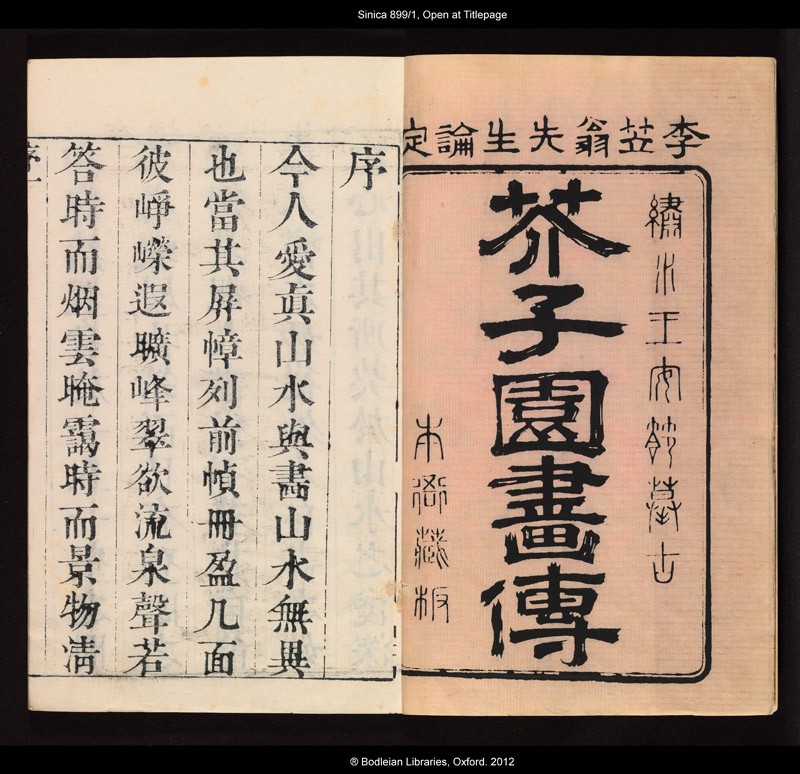 Sinica 899/1, Open at Titlepage
李笠翁先生論定
繡水王安節摹古
芥子園畫傳
本衙藏板
序
今人愛真山水與畫山水無異
也當其屏幛列前幀冊盈几面
彼崢嶸遐曠峰翠欲流泉聲若
答時而烟雲晻靄時而景物清
® Bodleian Libraries, Oxford. 2012